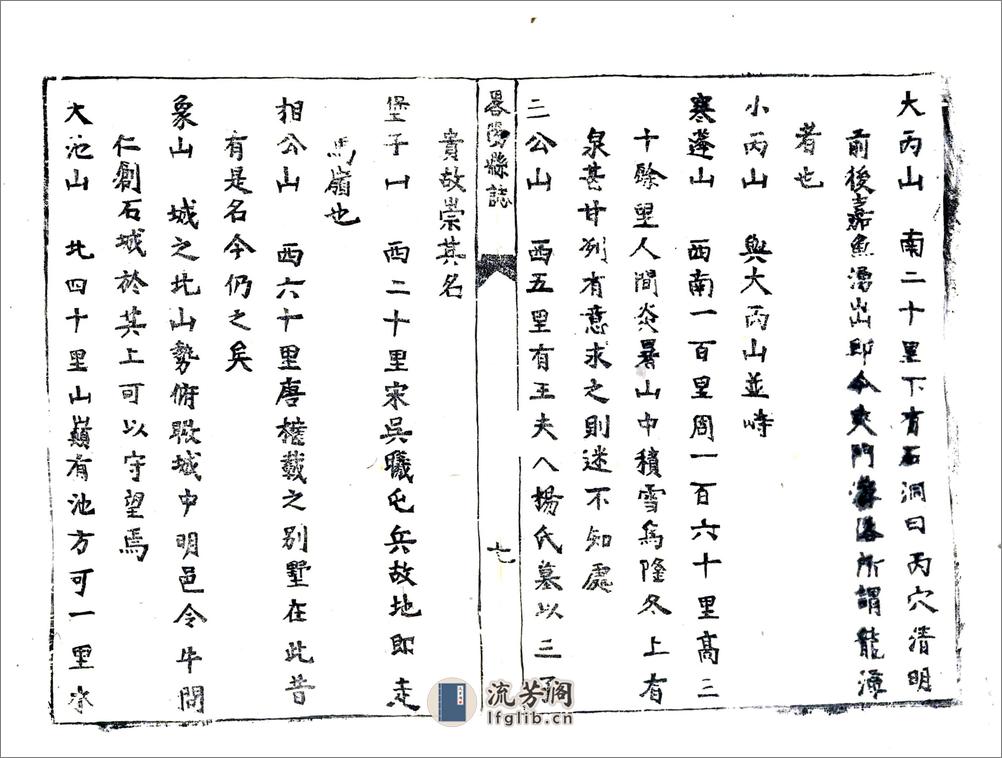 大丙山　南二十里下有石洞曰丙穴清明
前後嘉魚湧出即今夾門所謂龍潭
者也
小丙山　與大丙山並峙
寒蓬山　西南一百里周一百六十里高三
十餘里人間炎暑山中積雪為隆冬上有
泉甚甘冽有意求之則迷不知處
三公山　西五里有王夫人楊氏墓以三子
畧陽縣誌
七
貴故崇其名
堡子山　西二十里宋吳曦屯兵故地即走
馬嶺也
相公山　西六十里唐權載之別墅在此昔
有是名今仍之矣
象山　城之北山勢俯瞰城中明邑令牛問
仁創石城於其上可以守望焉
大池山　北四十里山巔有池方可一里水
流芳阁
lfglib.cn